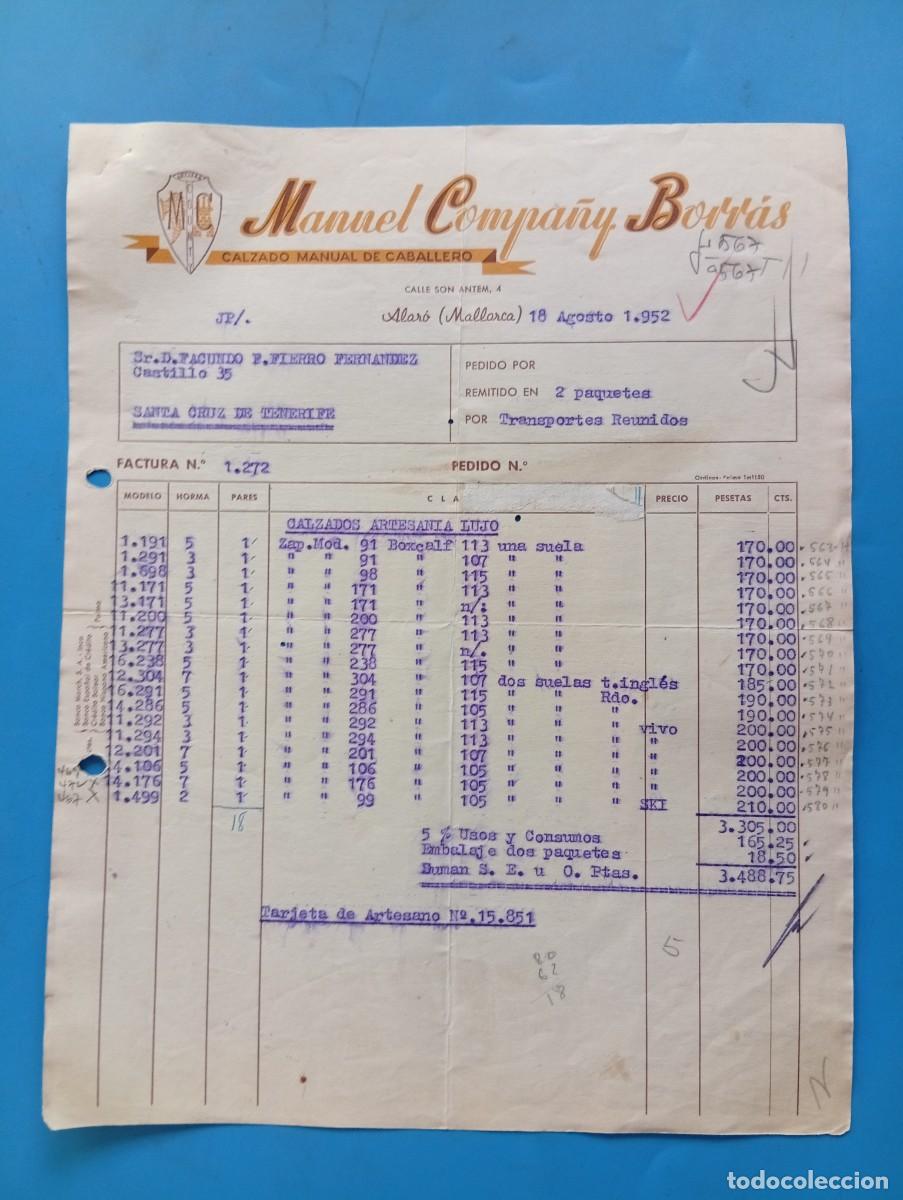 Manuel Compañy Borrás
CALZADO MANUAL DE CABALLERO
CALLE SON ANTEM, 4
JP/. Alaró (Mallorca) 18 Agosto 1.952
Sr.D.FACUNDO F.FIERRO FERNANDEZ
Castillo 35
SANTA CRUZ DE TENERIFE
PEDIDO POR
REMITIDO EN 2 paquetes
POR Transportes Reunidos
FACTURA N.° 1.272 PEDIDO N.°
MODELO HORMA PARES CLA PRECIO PESETAS CTS.
CALZADOS ARTESANIA LUJO
1.191 5 1 Zap.Mod. 91 Boxcalf 113 una suela 170.00
1.291 3 1 " " 91 " 107 " " 170.00
1.698 3 1 " " 98 " 115 " " 170.00
11.171 5 1 " " 171 " 113 " " 170.00
13.171 5 1 " " 171 " n/. " " 170.00
11.200 5 1 " " 200 " 113 " " 170.00
11.277 3 1 " " 277 " 113 " " 170.00
13.277 3 1 " " 277 " n/. " " 170.00
16.238 5 1 " " 238 " 115 " " 170.00
12.304 7 1 " " 304 " 107 dos suelas t.inglés 185.00
16.291 5 1 " " 291 " 115 " " Rdo. 190.00
14.286 5 1 " " 286 " 105 " " " 190.00
11.292 3 1 " " 292 " 113 " " " vivo 200.00
11.294 3 1 " " 294 " 113 " " " " 200.00
12.201 7 1 " " 201 " 107 " " " " 200.00
14.106 5 1 " " 106 " 105 " " " " 200.00
14.176 7 1 " " 176 " 105 " " " " 200.00
1.499 2 1 " " 99 " 105 " " " SKI 210.00
18
3.305.00
5 % Usos y Consumos 165.25
Embalaje dos paquetes 18.50
Suman S. E. u O. Ptas. 3.488.75
Tarjeta de Artesano Nº.15.851
5
18
Banco March, S. A. - Inca
Banco Español de Crédito
Crédito Balear
Banco Hispano Americano
Palma
todocoleccion